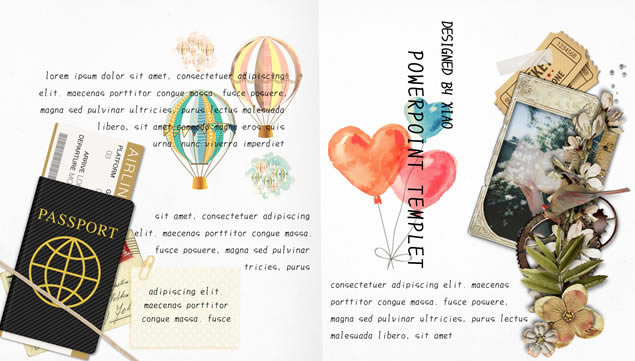 lorem ipsum dolor sit amet, consectetuer adipiscing
elit. maecenas porttitor congue massa. fusce posuere,
magna sed pulvinar ultricies, purus lectus malesuada
libero, sit amet commodo magna eros quis
urna. nunc viverra imperdiet
AIRLIN
PLATFORM
03
DEPARTURE
PASSPORT
sit amet, consectetuer adipiscing
elit. maecenas porttitor congue massa.
fusce posuere, magna sed pulvinar
tricies, purus
adipiscing elit.
maecenas porttitor
congue massa. fusce
DESIGNED BY XIAO
POWERPOINT TEMPLET
1234567
consectetuer adipiscing elit. maecenas
porttitor congue massa. fusce posuere,
magna sed pulvinar ultricies, purus lectus
malesuada libero, sit amet